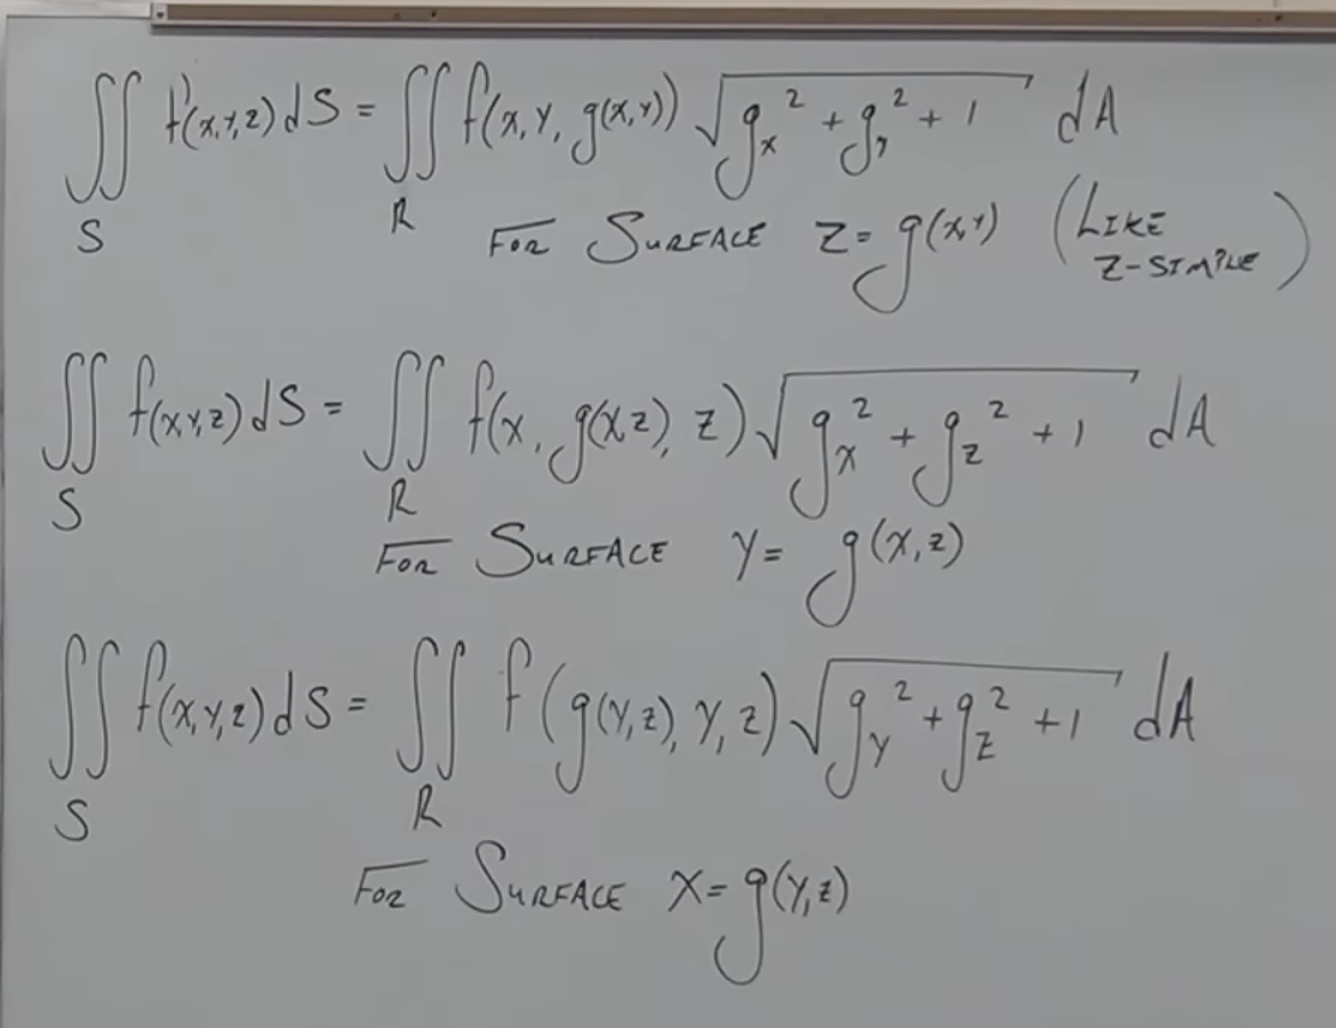 ∬_S f(x,y,z) dS = ∬_R f(x, y, g(x,y)) √(g_x² + g_y² + 1) dA
FOR SURFACE z = g(x,y) (LIKE Z-SIMPLE)
∬_S f(x,y,z) dS = ∬_R f(x, g(x,z), z) √(g_x² + g_z² + 1) dA
FOR SURFACE y = g(x,z)
∬_S f(x,y,z) dS = ∬_R f(g(y,z), y, z) √(g_y² + g_z² + 1) dA
FOR SURFACE x = g(y,z)